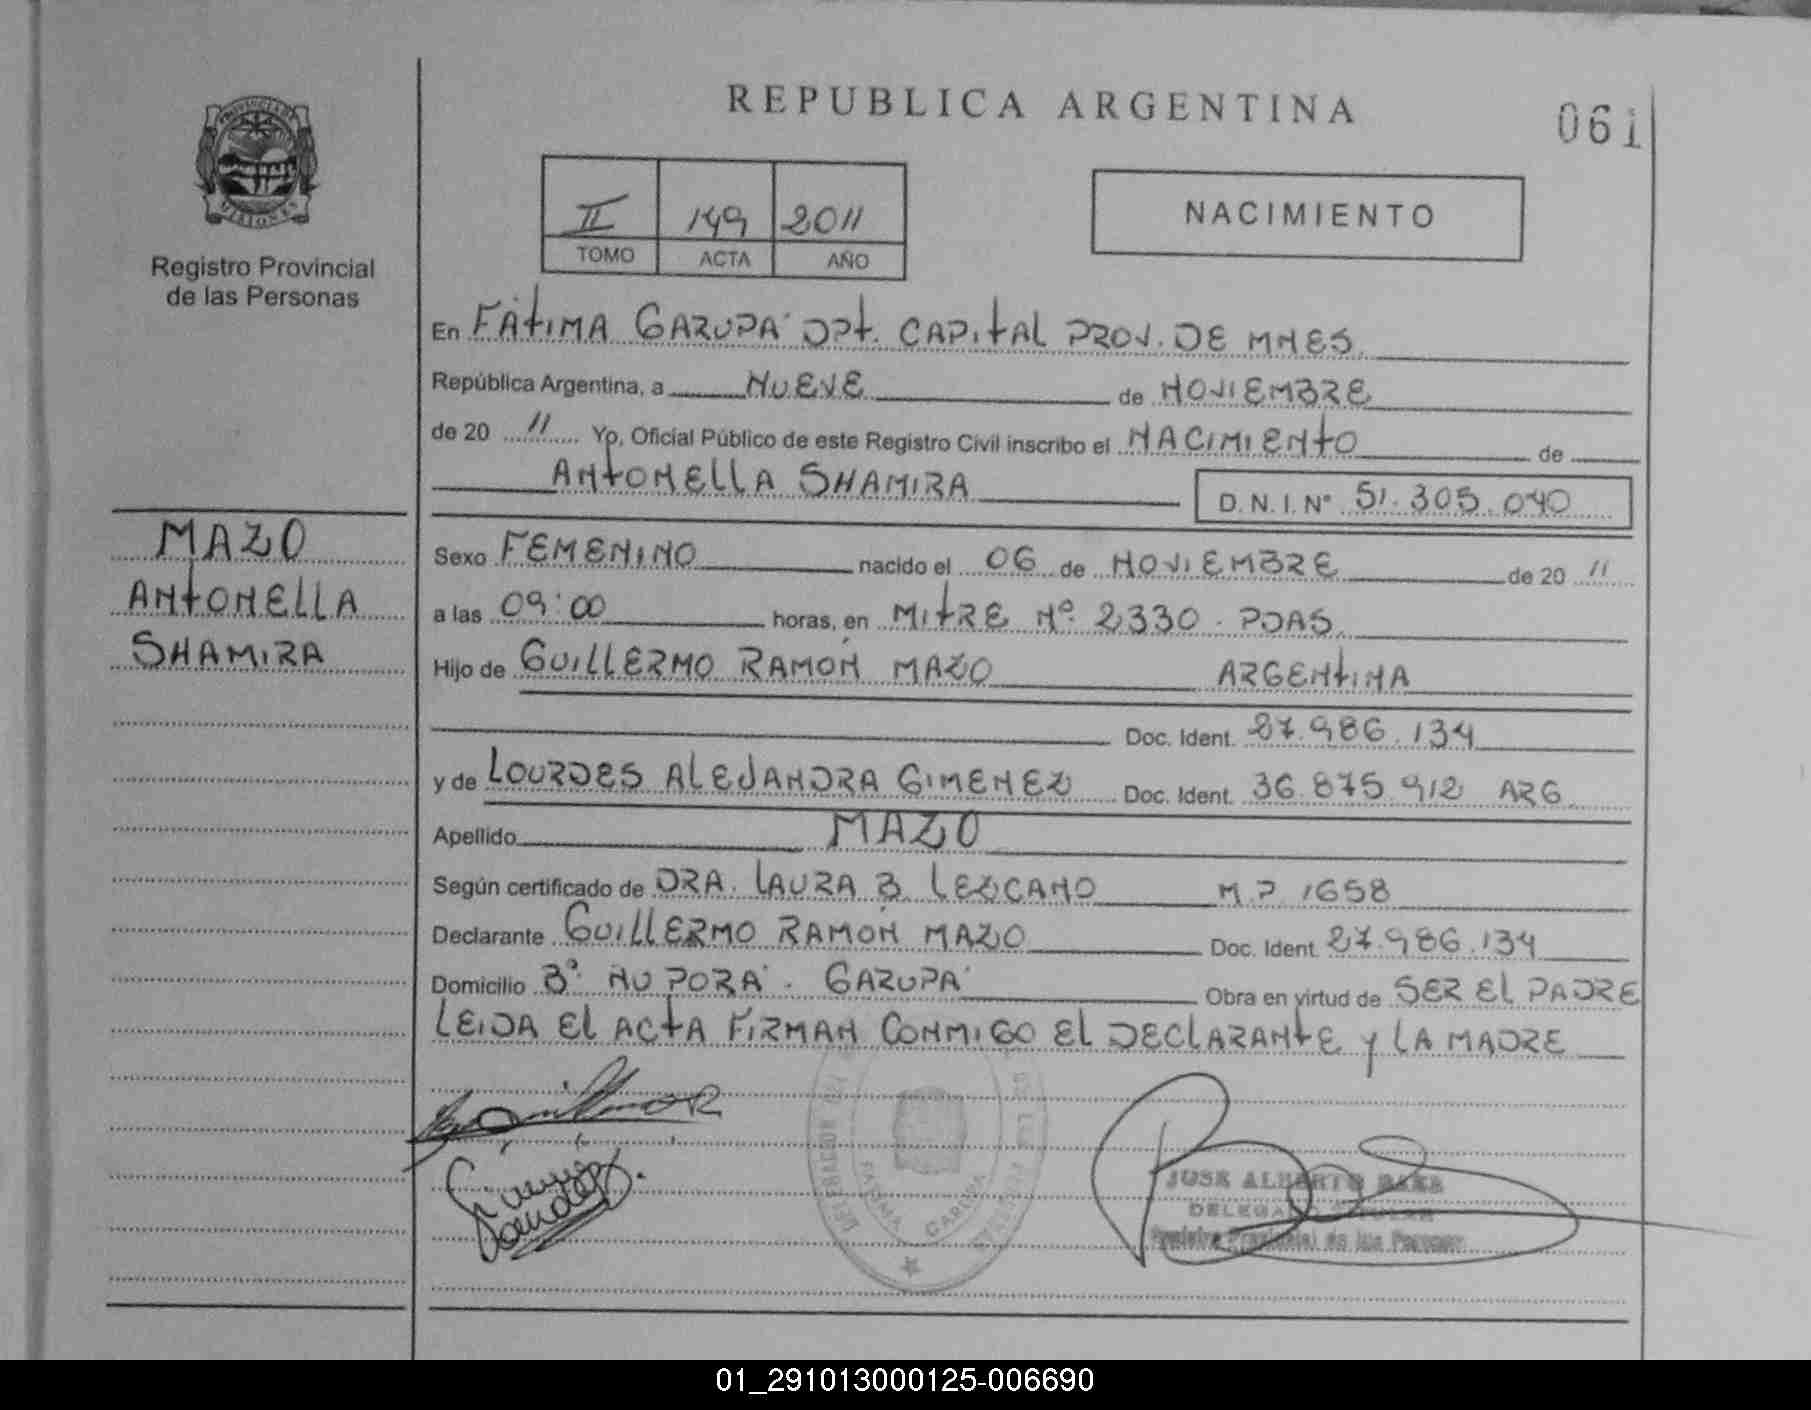 REPUBLICA ARGENTINA
061
PROVINCIA DE
MISIONES
Registro Provincial
de las Personas
II 149 2011
TOMO ACTA AÑO
NACIMIENTO
En FÁTIMA GARUPÁ DPT. CAPITAL PROV. DE MNES.
República Argentina, a NUEVE de NOVIEMBRE
de 20 11 Yo, Oficial Público de este Registro Civil inscribo el NACIMIENTO de
ANTONELLA SHAMIRA D.N.I. N° 51.305.040
MAZO
ANTONELLA
SHAMIRA
Sexo FEMENINO nacido el 06 de NOVIEMBRE de 20 11
a las 09:00 horas, en MITRE Nº 2330. PDAS.
Hijo de GUILLERMO RAMÓN MAZO ARGENTINA
Doc. Ident. 27.986.134
y de LOURDES ALEJANDRA GIMENEZ Doc. Ident. 36.875.912 ARG
Apellido MAZO
Según certificado de DRA. LAURA B. LEZCANO M.P. 1658
Declarante GUILLERMO RAMÓN MAZO Doc. Ident. 27.986.134
Domicilio Bº ÑU PORÁ. GARUPÁ Obra en virtud de SER EL PADRE
LEIDA EL ACTA FIRMAN CONMIGO EL DECLARANTE Y LA MADRE
FATIMA GARUPA
JOSE ALBERTO BAEZ
DELEGADO TITULAR
Registro Provincial de las Personas
01_291013000125-006690